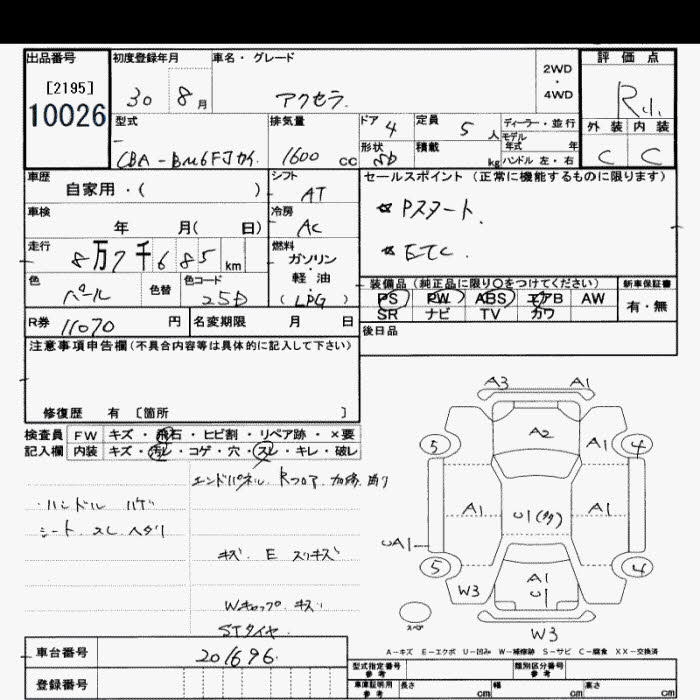 出品番号
[2195]
10026
初度登録年月
30 8月
車名・グレード
アクセラ
2WD
・
4WD
評価点
外装 内装
C C
型式
CBA-BM6FJ
排気量
1600 cc
ドア 4
形状
定員 5 人
積載 kg
ディーラー・並行
モデル
年式 年
ハンドル 左・右
車歴
自家用・( )
シフト
AT
車検
年 月( 日)
冷房
AC
走行
8万7千685km
燃料
ガソリン
・
軽油
(LPG)
色
パール
色替
色コード
25D
R券 11070 円
名変期限 月 日
セールスポイント (正常に機能するものに限ります)
☆ Pスタート
☆ ETC
装備品 (純正品に限り○をつけてください)
PS PW ABS エアB AW
SR ナビ TV カワ
新車保証書
有・無
後日品
注意事項申告欄(不具合内容等は具体的に記入して下さい)
修復歴 有 〔箇所 〕
検査員
記入欄
FW キズ・飛石・ヒビ割・リペア跡・×要
内装 キズ・汚レ・コゲ・穴・スレ・キレ・破レ
エンドパネル Rフロア 曲り
・ハンドル ハゲ
シート スレ ヘタリ
キズ E スリキズ
Wキャップ キズ
STタイヤ
A3 A1
5 A2 A1 4
A1 U1 A1
UA1
5 A1 4
U1
W3
W3
スペア
A-キズ E-エクボ U-凹み W-補修跡 S-サビ C-腐食 XX-交換済
車台番号
201696
登録番号
型式指定番号
参考
類別区分番号
参考
車庫証明用
参考
長さ cm 幅 cm 高さ cm